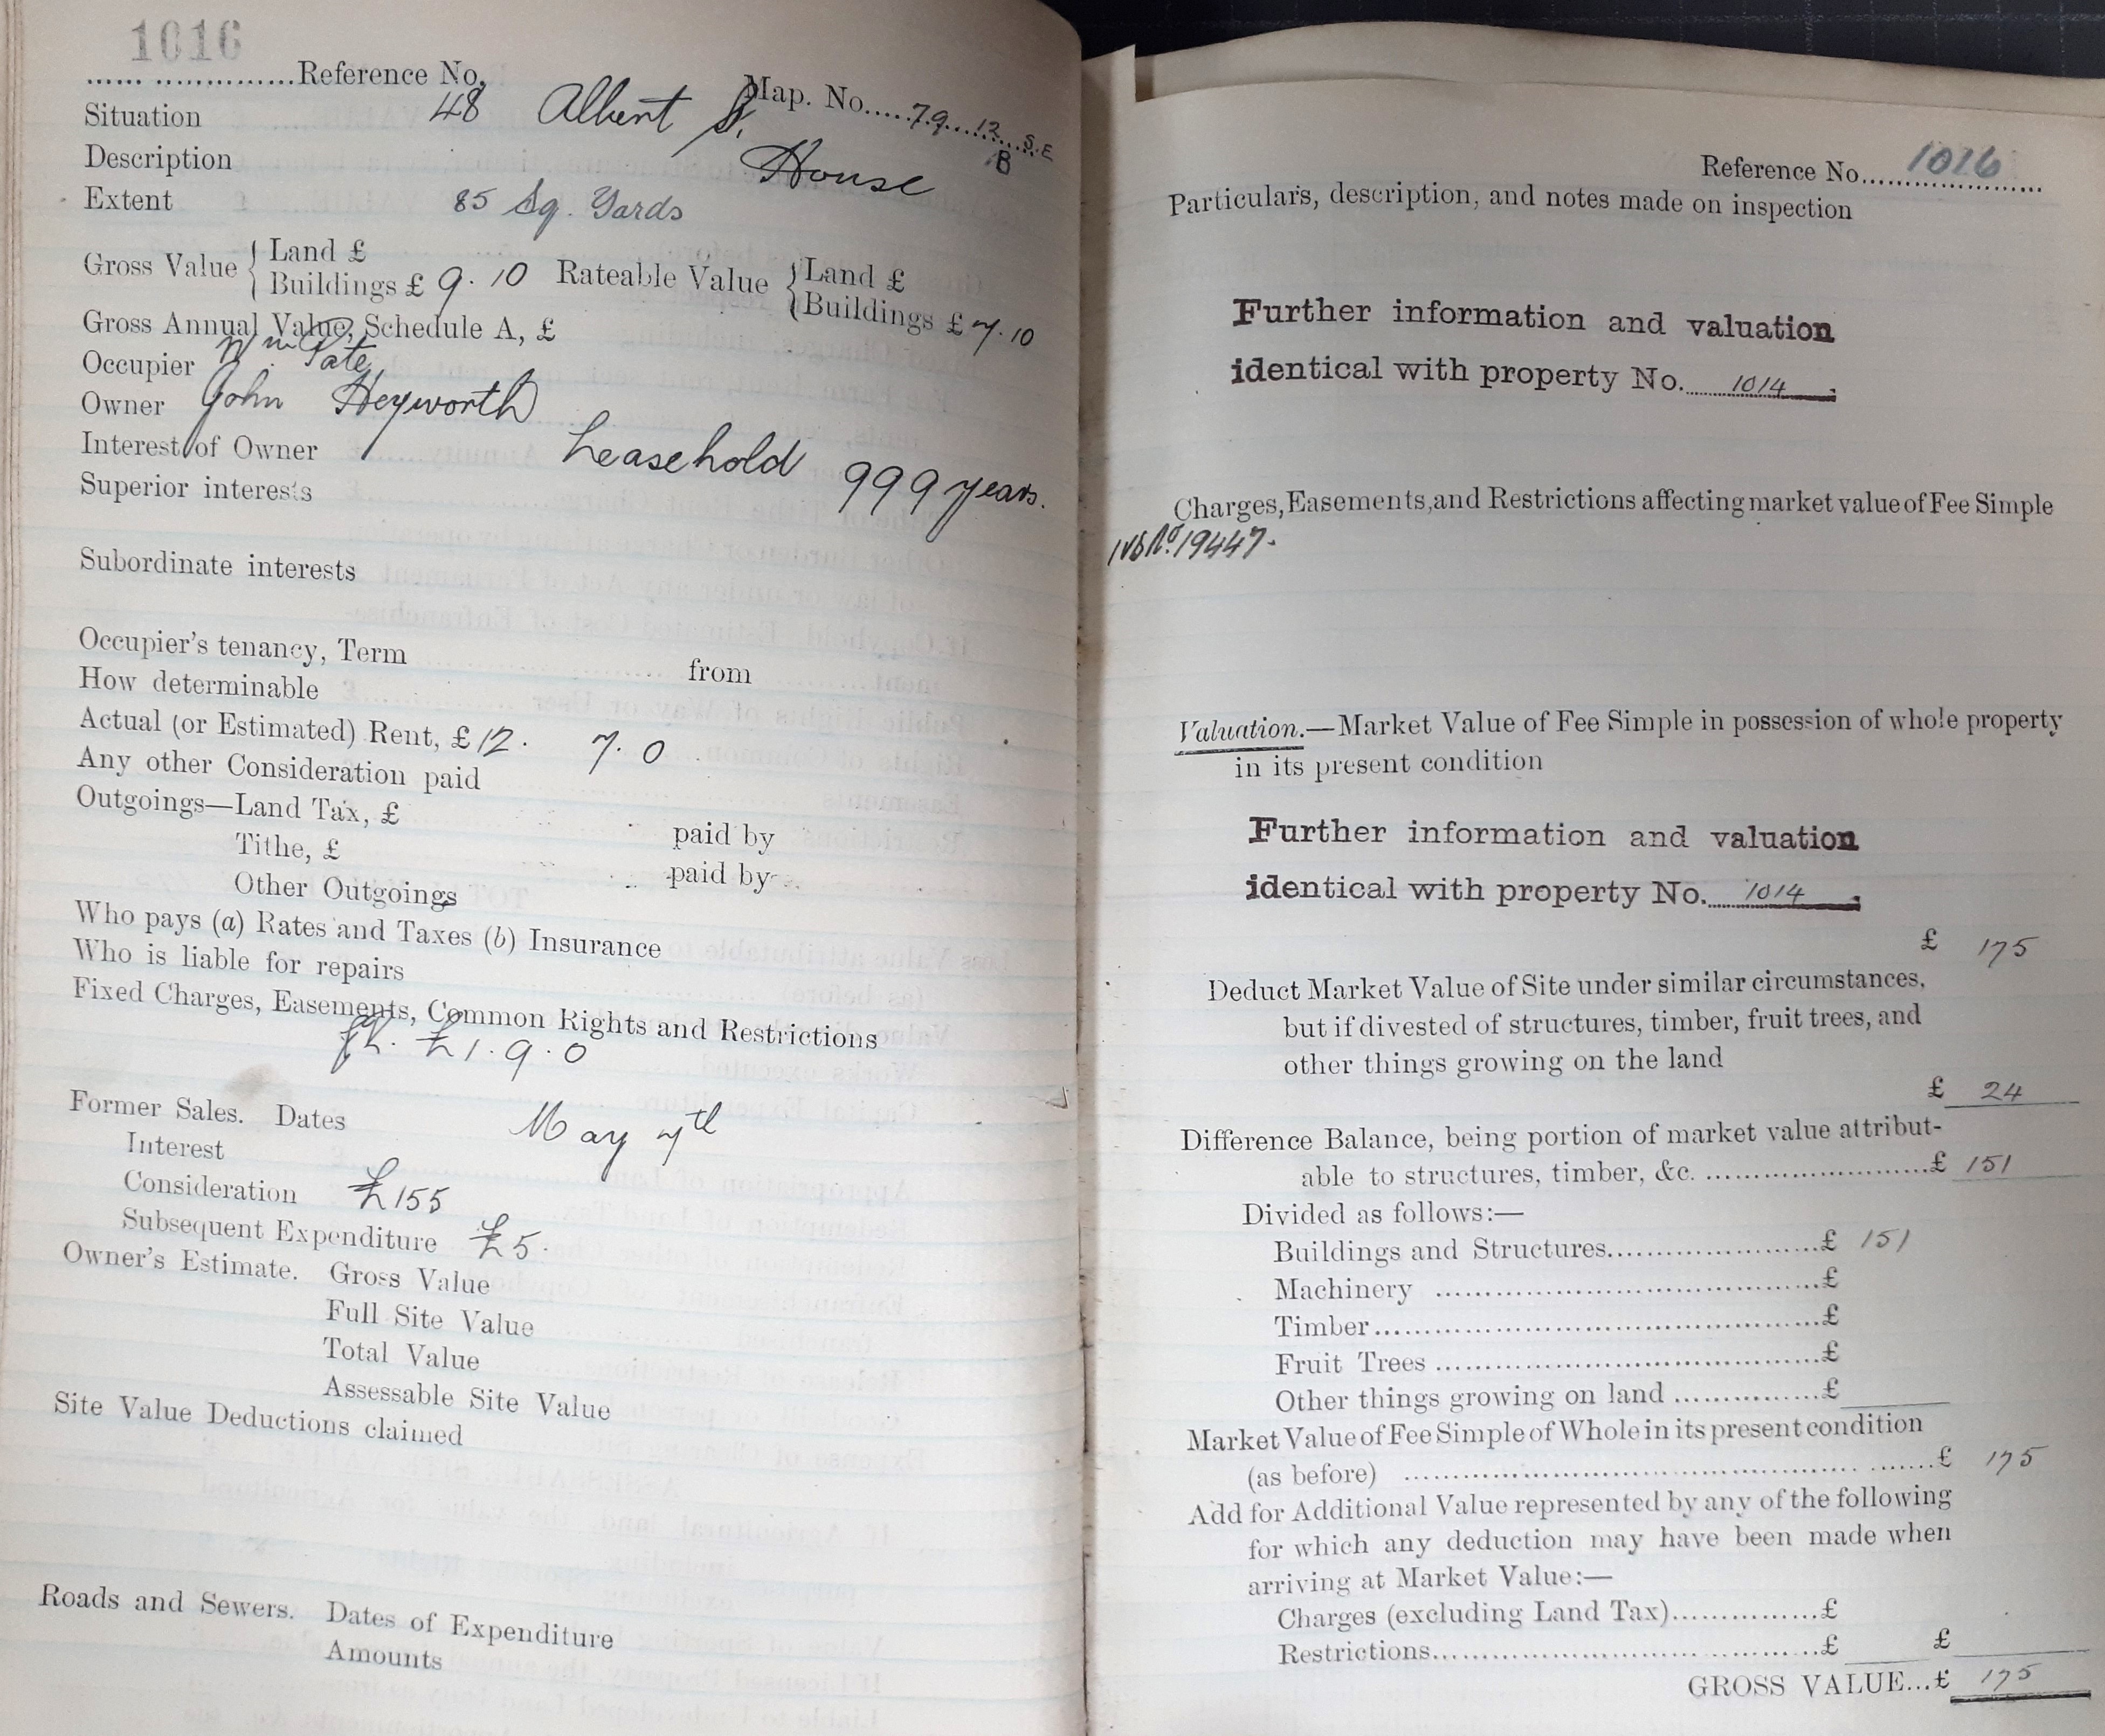 1016
...... ..............Reference No.
Map. No.....79...12...S.E
B
Situation 48 Albert St.
Description House
Extent 85 Sq. Yards
Gross Value { Land £
Buildings £ 9. 10 Rateable Value { Land £
Buildings £ 7. 10
Gross Annual Value, Schedule A, £
Occupier Wm Pate
Owner John Heyworth
Interest of Owner Leasehold 999 years.
Superior interests
Subordinate interests
Occupier's tenancy, Term from
How determinable
Actual (or Estimated) Rent, £ 12. 7. 0
Any other Consideration paid
Outgoings—Land Tax, £ paid by
Tithe, £ paid by
Other Outgoings
Who pays (a) Rates and Taxes (b) Insurance
Who is liable for repairs
Fixed Charges, Easements, Common Rights and Restrictions
£1. 9. 0
Former Sales. Dates May 7th
Interest
Consideration £155
Subsequent Expenditure £5.
Owner's Estimate. Gross Value
Full Site Value
Total Value
Assessable Site Value
Site Value Deductions claimed
Roads and Sewers. Dates of Expenditure
Amounts
Reference No. 1016
Particulars, description, and notes made on inspection
Further information and valuation
identical with property No. 1014.
Charges, Easements, and Restrictions affecting market value of Fee Simple
No. 19447.
Valuation.—Market Value of Fee Simple in possession of whole property
in its present condition
Further information and valuation
identical with property No. 1014.
£ 175
Deduct Market Value of Site under similar circumstances,
but if divested of structures, timber, fruit trees, and
other things growing on the land
£ 24
Difference Balance, being portion of market value attribut-
able to structures, timber, &c. ........................£ 151
Divided as follows:—
Buildings and Structures........................£ 151
Machinery ........................£
Timber........................£
Fruit Trees ........................£
Other things growing on land ...............£
Market Value of Fee Simple of Whole in its present condition
(as before) ........................£ 175
Add for Additional Value represented by any of the following
for which any deduction may have been made when
arriving at Market Value:—
Charges (excluding Land Tax)...............£
Restrictions........................£ £
GROSS VALUE...£ 175